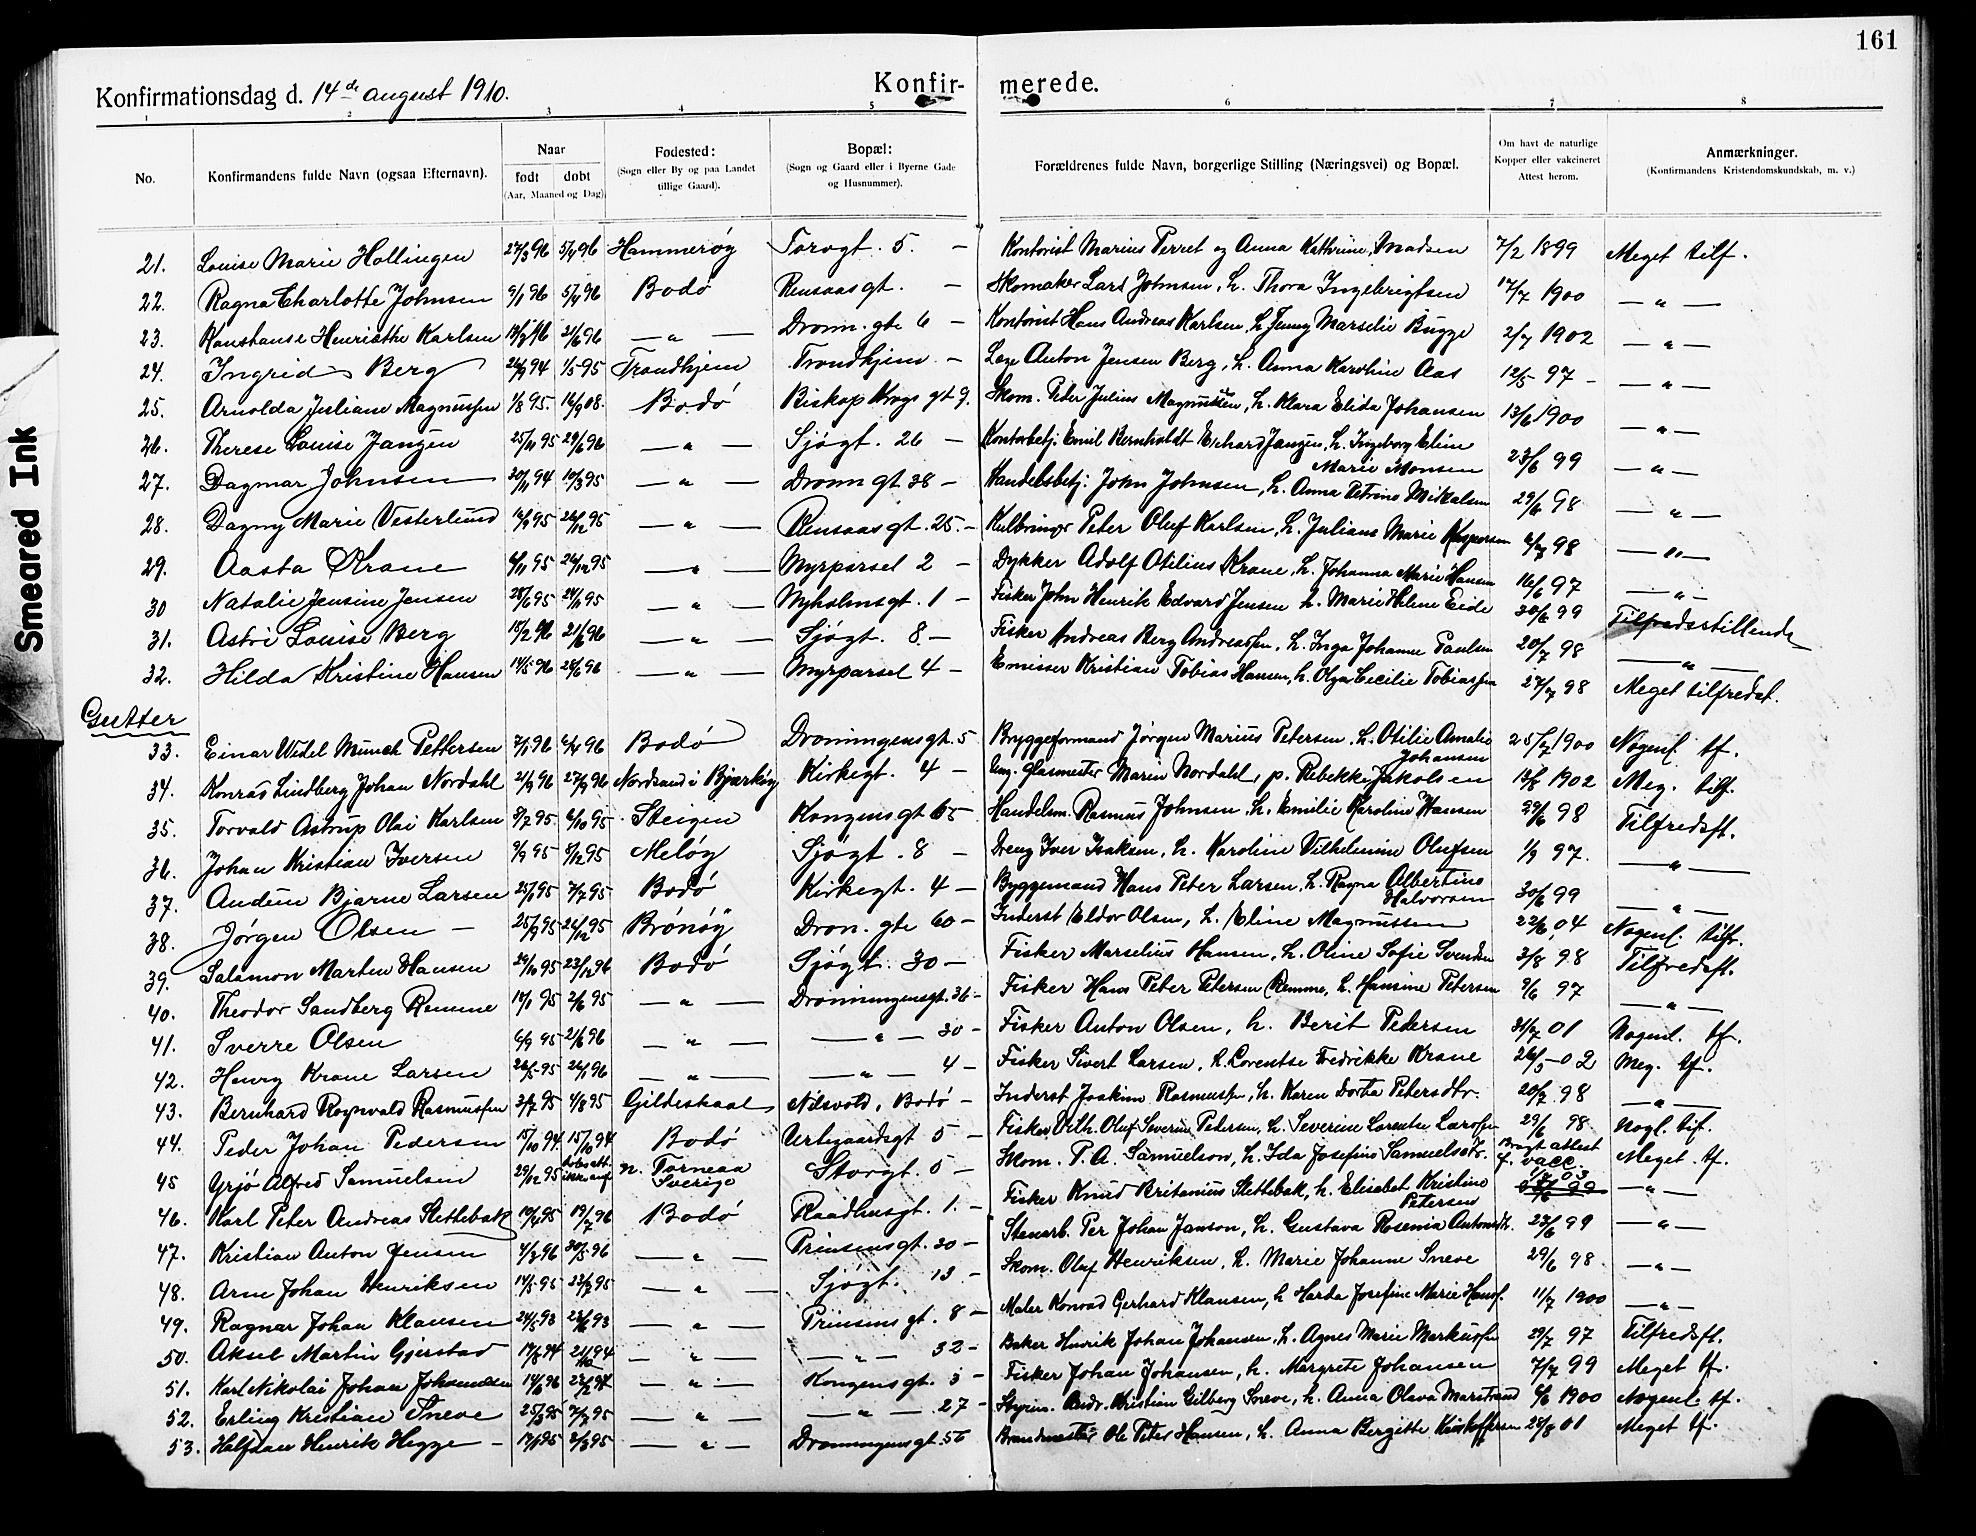 161
Smeared Ink
Konfirmationsdag d. 14de august 1910.
Konfir- merede.
1 2 3 4 5 6 7 8
No. Konfirmandens fulde Navn (ogsaa Efternavn). Naar født døbt (Aar, Maaned og Dag). Fødested: (Sogn eller By og paa Landet tillige Gaard). Bopæl: (Sogn og Gaard eller i Byerne Gade og Husnummer). Forældrenes fulde Navn, borgerlige Stilling (Næringsvei) og Bopæl. Om havt de naturlige Kopper eller vakcineret Attest herom. Anmærkninger. (Konfirmandens Kristendomskundskab, m. v.)
21. Louise Marie Hollingen 27/3 96 5/4 96 Hammerøy Torvgt. 5. — Kontorist Marius Perret og Anna Kathrine Madsen 7/2 1899 Meget tilf.
22. Ragna Charlotte Johnsen 9/1 96 5/4 96 Bodø Rensaasgt. — Skomaker Lars Johnsen, h. Thora Ingebrigtsen 17/7 1900 — " —
23. Konstanse Henriette Karlsen 21/6 96 — " — Dronn. gte 6 — Kontorist Hans Andreas Karlsen, h. Jenny Marselie Bugge 2/7 1902 — " —
24. Ingrid Berg 1/5 95 Trondhjem Trondhjem — Anton Jensen Berg, h. Anna Karoline Aas 12/5 97 — — " —
25. Arnolda Juliane Magnussen 1/8 95. 16/9 08. Bodø Biskop Krogs gt 9. Skom. Peter Julius Magnussen, h. Klara Elida Johansen 13/6 1900 — " —
26. Therese Louise Janzen 25/11 95 29/6 96 — " — Sjøgt. 26 — Kontorbetj. Emil Bernholdt Janzen, h. Ingeborg Eline Marie Monsen 23/6 99 — " —
27. Dagmar Johnsen 30/11 94 10/3 95 — " — Dronn gt 38 — Handelsbetj. John Johnsen, h. Anna Petrine Mikalsen 29/6 98 — " —
28. Dagny Marie Vesterlund 26/12 95 — " — Rensaasgt. 25. — Peter Oluf Karlsen, h. Juliane Marie Kaspersen 98 — " —
29. Aasta Krane 6/11 95 26/12 95 — " — Myrparsel 2 — Dykker Adolf Otilius Krane, h. Johanna Marie Hansen 16/6 97 — " —
30 Natalie Jensine Jensen 25/6 95 24/11 95 — " — Nyholmsgt. 1 — Fisker John Henrik Edvard Jensen h. Marie Helene Eide 30/6 99 Tilfredsstillende
31. Astri Louise Berg 15/2 96 21/6 96 — " — Sjøgt. 8 — Fisker Andreas Berg Andreassen, h. Inga Johanne Paulsen 20/7 98 — " —
32. Hilda Kristine Hansen 14/5 96 28/6 96 — " — Myrparsel 4 — Emissær Kristian Tobias Hansen, h. Olga Cecilie Tobiassen 27/7 98 Meget tilfredst.
Gutter
33. Einar Widel Munch Pettersen 7/1 96 6/4 96 Bodø Dronningensgt. 5 Bryggeformand Jørgen Marius Petersen, h. Otilie Amalie Johansen 25/7 1900 Nogenl. tf.
34. Konrad Lindberg Johan Nordahl 27/9 96 Nordsand i Bjarkøy Kirkegt. 4 — Glasmester Marin Nordahl, p. Rebekka Jakobsen 13/8 1902 Meg. tilf.
35. Torvald Astrup Olai Karlsen 3/7 95 6/10 95 Steigen Kongensgt 65 — Handelsm. Rasmus Johnsen, h. Emilie Karoline Hansen 29/6 98 Tilfredsst.
36. Johan Kristian Iversen 9/9 95 8/12 95 Meløy Sjøgt. 8 — Dreng Iver Isaksen, h. Karoline Vilhelmine Olufsen 1/9 97. — " —
37. Audun Bjarne Larsen 25/1 95 7/7 95 Bodø Kirkegt. 4 — Byggemand Hans Peter Larsen, h. Ragna Albertine Halvorsen 30/6 99 — " —
38. Jørgen Olsen — 25/9 95 26/12 95 Brønøy Dron. gte 60 — Inderst Eldor Olsen, h. Eline Magnussen 22/6 04 Nogenl. tilfr.
39. Salamon Marten Hansen 29/10 95 23/12 96 Bodø Sjøgt. 30 — Fisker Marselius Hansen, h. Oline Sofie Svendsen 3/8 98 Tilfredsst.
40. Theodor Sandberg Remme 14/1 95 2/6 95 — " — Dronningensgt. 36 — Fisker Hans Peter Petersen Remme, h. Hansine Petersen 9/6 97 — " —
41. Sverre Olsen 6/9 95 21/6 96 — " — — " — 30 — Fisker Anton Olsen, h. Berit Pedersen 31/7 01 Nogenl. tf.
42. Henry Krane Larsen 26/5 95 26/1 96 — " — — " — 4 — Fisker Sivert Larsen, h. Lorentse Fredrikke Krane 26/5 02 Meg. tf.
43. Bernhard Rognvald Rasmussen 3/7 95 4/8 95 Gildeskaal Nilsvold, Bodø — Inderst Joakim Rasmussen, h. Karen Dortea Petersdtr. 20/7 98 — " —
44. Peder Johan Pedersen 15/10 94 Bodø Urtegaardsgt 5 — Fisker Vilh. Oluf Severin Petersen, h. Severine Lorentse Larssen 29/6 98 Nogl. tif.
45 Yrjø Alfred Samuelsen 29/12 95 n. Torneaa Sverige Storgt. 5 — Skom. P. A. Samuelson, h. Ida Josefine Samuelsdtr. Bragt attest f. vacc. Meget tf.
46. Karl Peter Andreas Slettebak 19/4 95 Bodø Raadhusgt. 1. — Fisker Knud Britanius Slettebak, h. Elisabet Kristine Petersen — " —
47. Kristian Anton Jensen 4/3 96 30/5 96 — " — Prinsensgt. 30 — Stenarb. Per Johan Janson, h. Gustava Rosenia Antonsdtr. 23/6 99 — " —
48. Arne Johan Henriksen 14/5 95 23/7 95 — " — Sjøgt. 13 — Skom. Oluf Henriksen, h. Marie Johanne Sneve 29/6 98 — " —
49. Ragnar Johan Klausen 24/5 93 93 — " — Prinsens gt. 8 — Maler Konrad Gerhard Klausen, h. Harda Josefine Marie Hansf. 11/7 1900 — " —
50. Aksel Martin Gjerstad 21/10 94 — " — — " — 32 — Baker Henrik Johan Johansen, h. Agnes Marie Markussen 29/7 97 Tilfredsst.
51. Karl Nikolai Johan Johansen — " — Kongensgt. 3 — Fisker Johan Johansen, h. Margrete Johansen 7/7 99 Meget tf.
52. Erling Kristian Sneve 25/3 95 7/7 95 — " — — " — 27 — Styrm. Andr. Kristian Gilberg Sneve, h. Anna Olava Marstrand 6/6 1900 Nogenl. tf.
53. Halfdan Henrik Higge — 17/1 95 3/3 95 — " — Dronningensgt. 56 Brandmester Ole Peter Hansen, h. Anna Bergitte Kristoffersen 25/8 01 Meget tf.